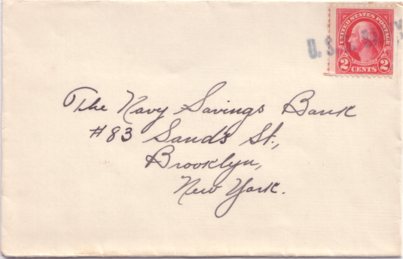 U.S.
UNITED STATES POSTAGE
2 CENTS 2
The Navy Savings Bank
#83 Sands St.,
Brooklyn,
New York.